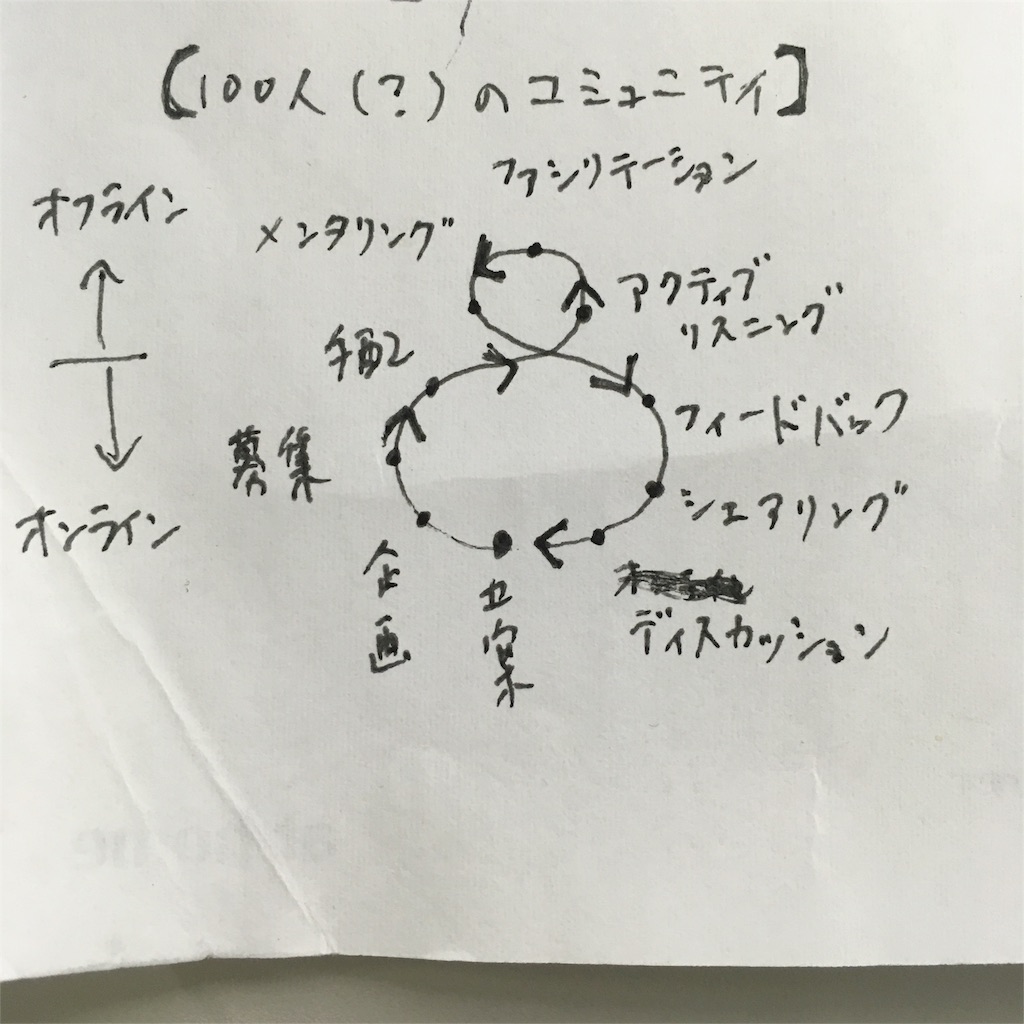 【100人(?)のコミュニティ】
ファシリテーション
オフライン
メンタリング
アクティブ
リスニング
手配
フィードバック
募集
シェアリング
オンライン
企画
立案
ディスカッション